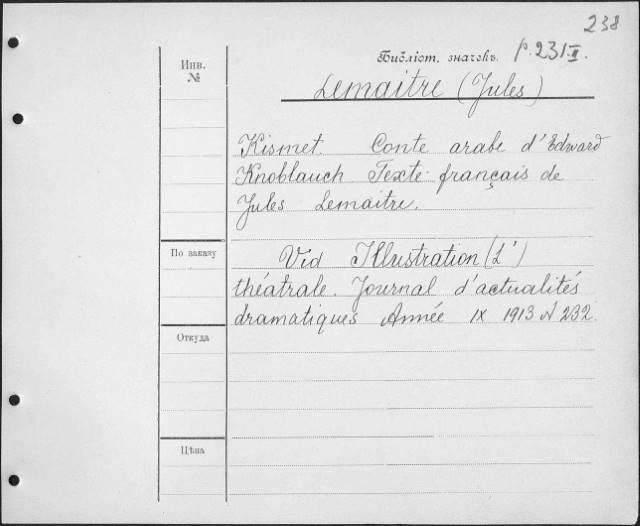 238
Библіот. значекъ. p.231.II.
Инв.
№
Lemaitre (Jules)
Kismet. Conte arabe d'Edward
Knoblauch Texte français de
Jules Lemaitre.
По заказу
Vid Illustration (L')
théatrale. Journal d'actualités
dramatiques Année IX 1913 № 232.
Откуда
Цѣна